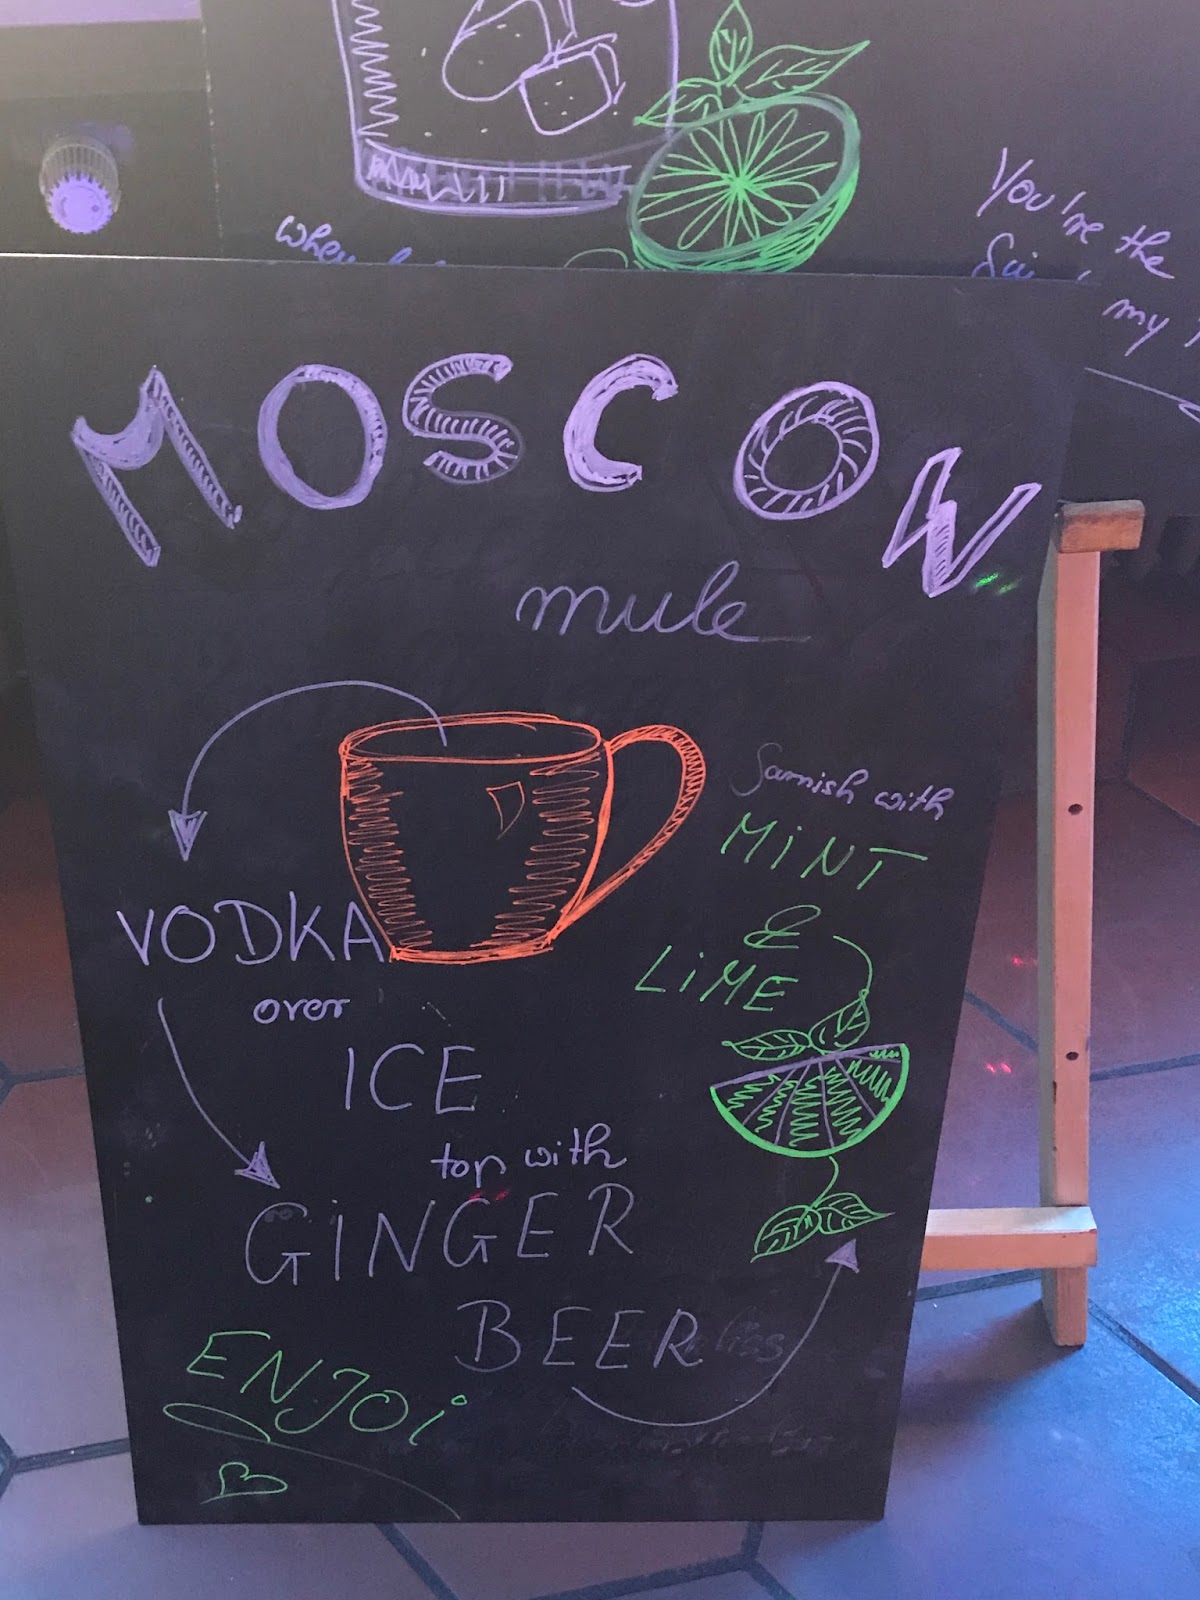 when
You're the
my
MOSCOW
mule
Garnish with
MiNT
&
LiME
VODKA
over
ICE
top with
GiNGER
BEER
ENJOi